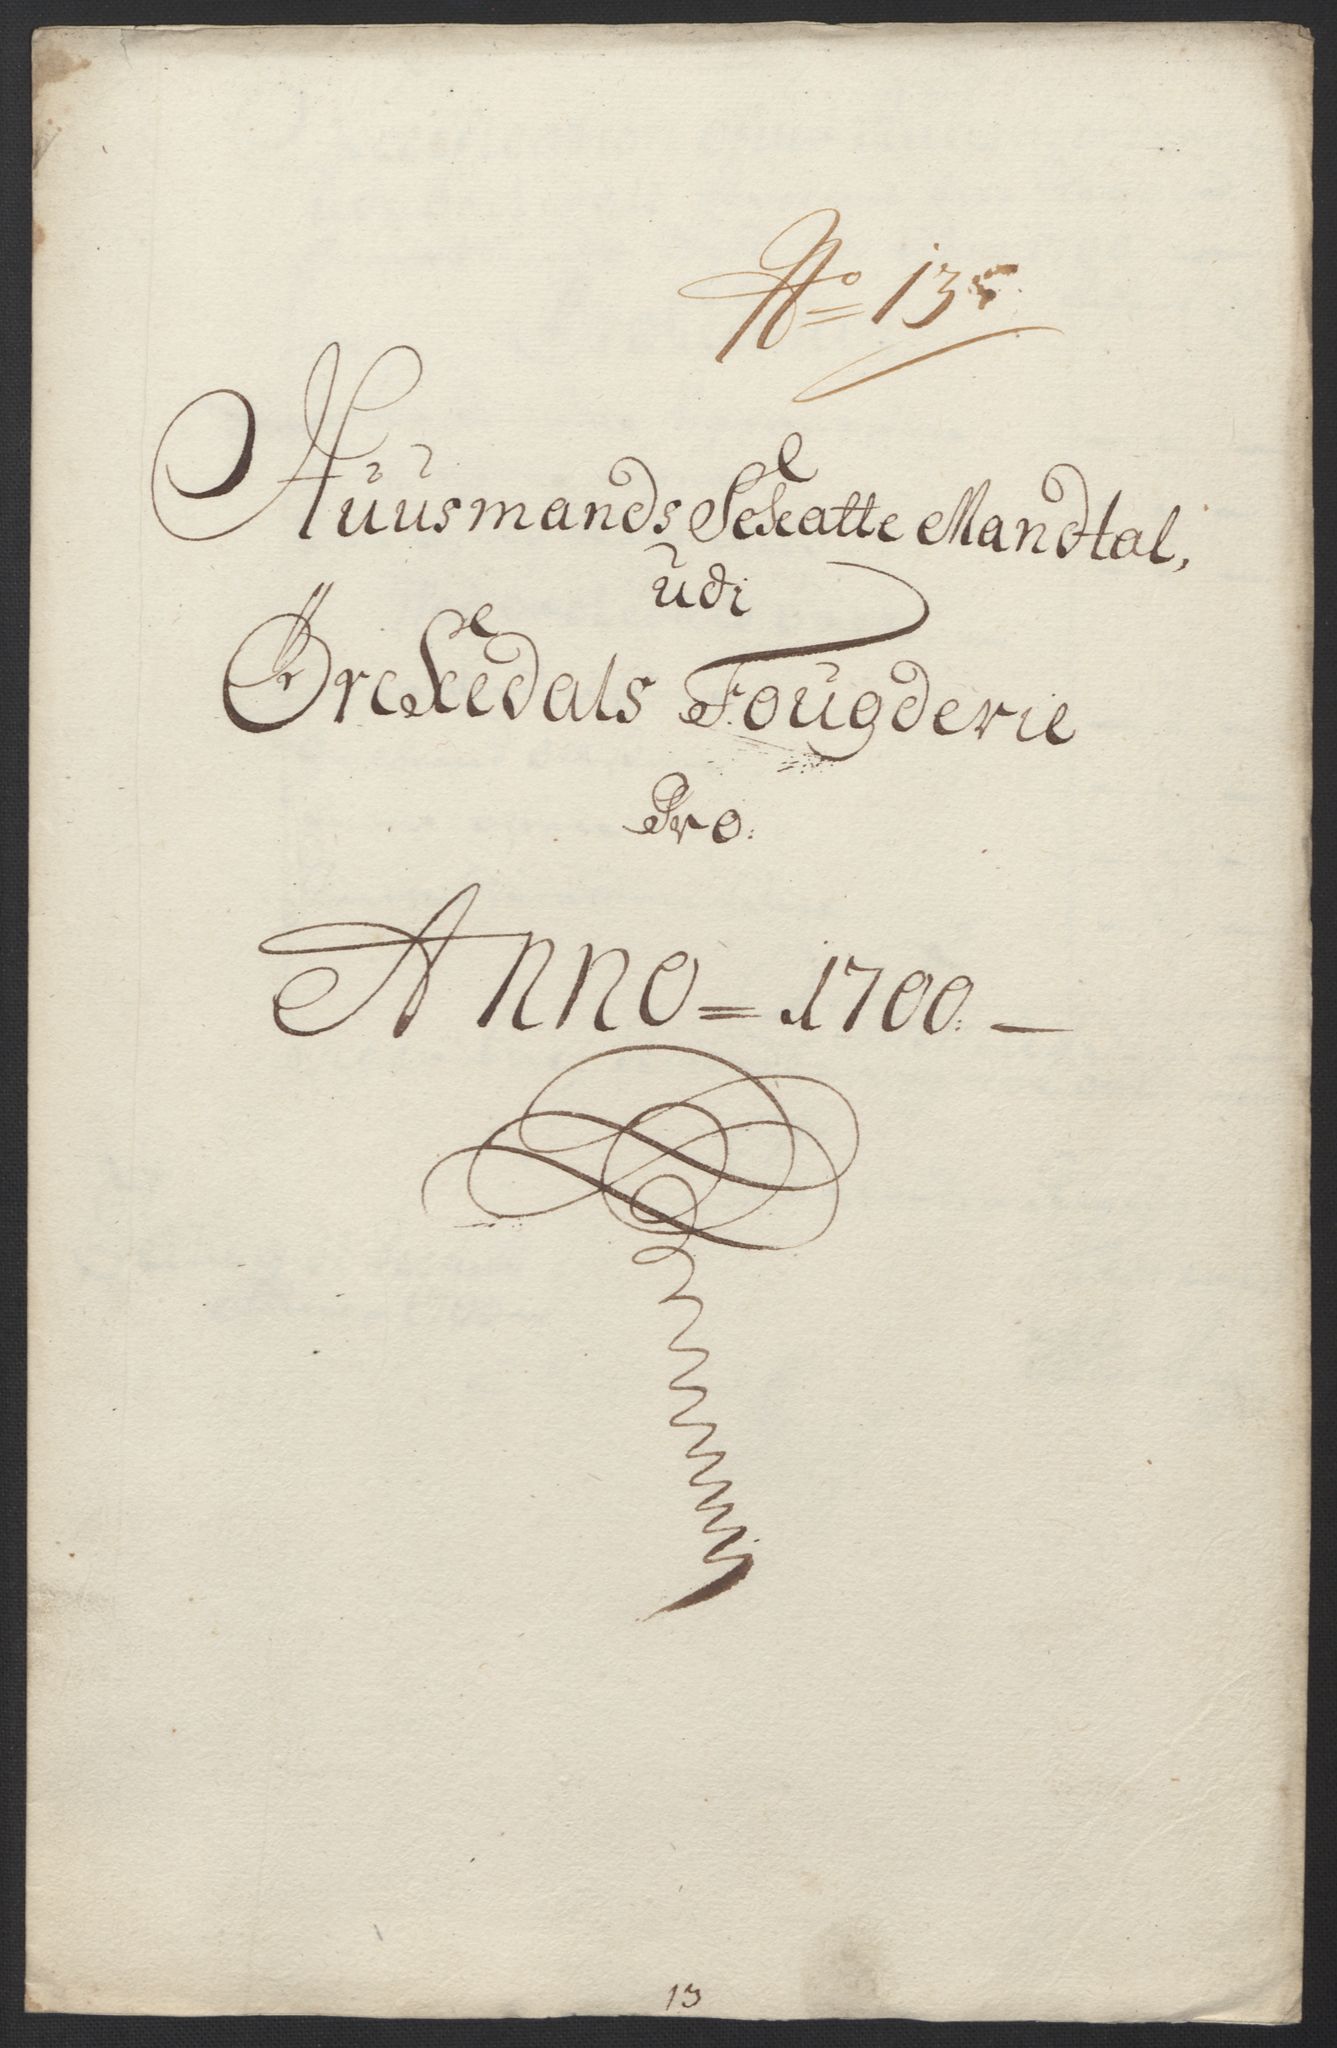 No 135
Huusmands Schatte Mandtal,
udi
Ørckedals Fougderie
Pro.
Anno = 1700. —
13